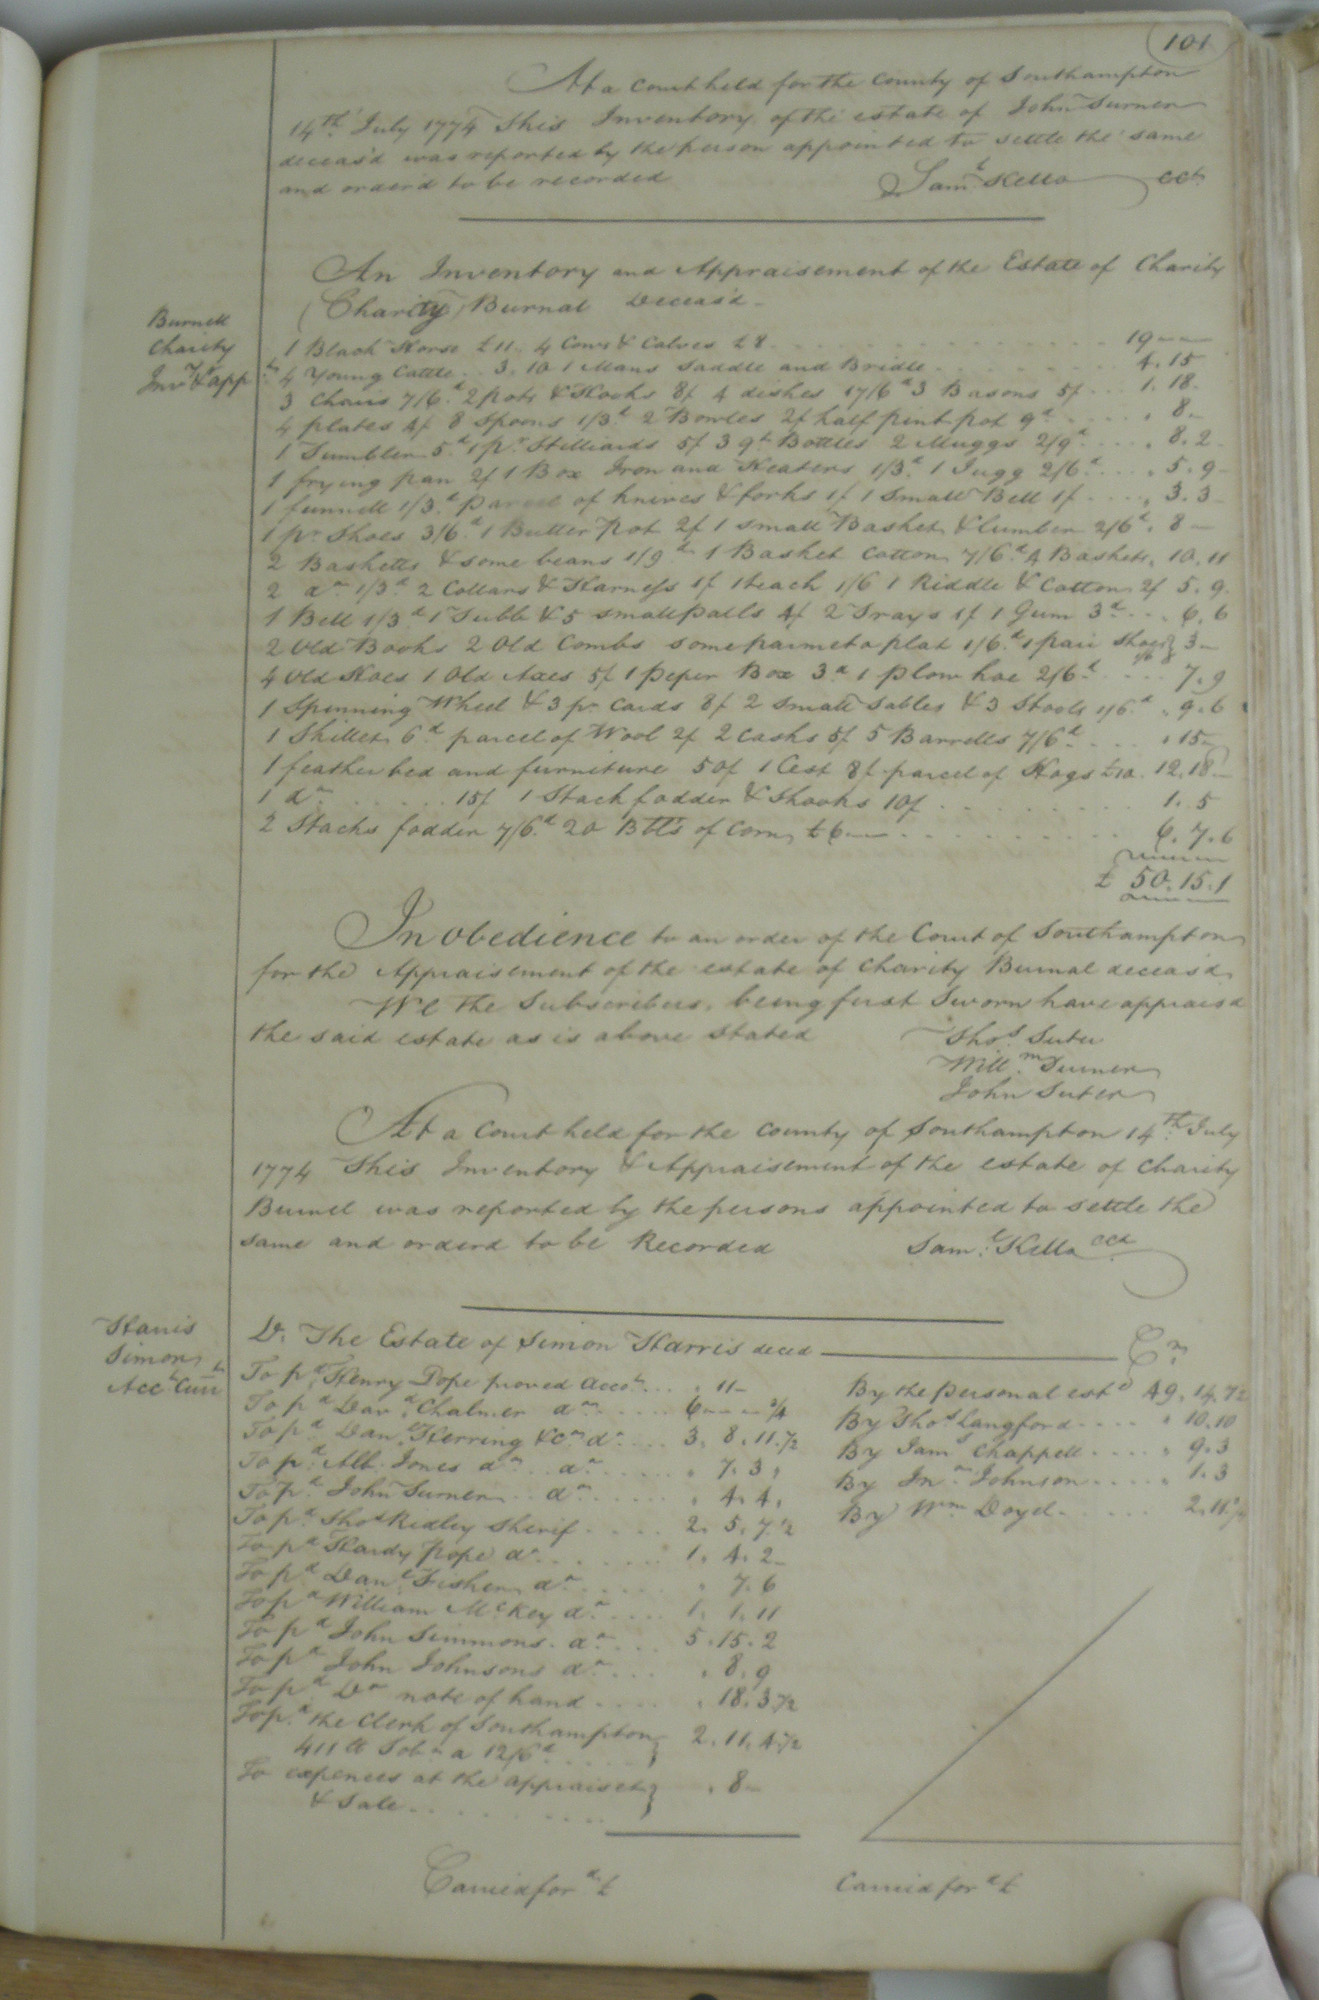 101
At a Court held for the County of Southampton
14th July 1774 This Inventory of the estate of John Turner
deceas'd was reported by the person appointed to settle the same
and order'd to be recorded Saml Kello CCk
An Inventory and Appraisement of the Estate of Charity
(Charity) Burnal Deceas'd
Burnell
Charity
Invy & appt
1 Black Horse £11 4 Cows & Calves £8 19 — —
4 Young Cattle 3.10 1 Mans Saddle and Bridle 4.15
3 Chairs 7/6d 2 pots & Hooks 8/ 4 dishes 17/6d 3 Basons 5/ 1.18
4 plates 4/ 8 Spoons 1/3d 2 Bowles 2/ half pint pot 9d 8 —
1 Tumbler 5d 1 pr Stilliards 5/ 3 qt Bottles 2 Muggs 2/9d 8.2
1 frying pan 2/ 1 Box Iron and Heaters 1/3d 1 Jugg 2/6d 5.9
1 funnell 1/3d parcel of knives & forks 1/ 1 Small Bell 1/ 3.3
1 pr Shoes 3/6d 1 Butter Pot 2/ 1 small Basket & lumber 2/6d 8 —
2 Basketts & some beans 1/9d 1 Basket Cotton 7/6d 4 Baskets 10.11
2 do 1/3d 2 Collars & Harness 1/ 1 teach 1/6 1 Riddle & Cotton 2/ 5.9
1 Bell 1/3d 1 Tubb & 5 small Palls 4/ 2 Trays 1/ 1 Gum 3d 6.6
2 Old Books 2 Old Combs some 1/6d 1 pair Shoes 1/6 } 3 —
4 Old Hoes 1 Old Axes 5/ 1 Peper Box 3d 1 plow hoe 2/6d 7.9
1 Spinning Wheel & 3 pr Cards 8/ 2 small Tables & 3 Stools 1/6d 9.6
1 Skillet 6d parcel of Wool 2/ 2 Casks 5/ 5 Barrells 7/6d 15 —
1 feather bed and furniture 50/ 1 Cest 8/ parcel of Hogs £10 12.18 —
1 do 15/ 1 Stack fodder & Shooks 10/ 1.5
2 Stacks fodder 7/6d 20 Bbls of Corn £6 — 6.7.6
£ 50.15.1
In obedience to an order of the Court of Southampton
for the Appraisement of the estate of Charity Burnal deceas'd
We the Subscribers, being first Sworn have appraisd
the said estate as is above stated Thos Suter
Willm Turner
John Suter
At a Court held for the County of Southampton 14th July
1774 This Inventory & Appraisement of the estate of Charity
Burnel was reported by the persons appointed to settle the
same and orderd to be Recorded Saml Kello CCk
Harris
Simon
Acct Curt
Dr. The Estate of Simon Harris deced Cr
To pd Henry Pope proved Acct 11 —
To pd Davd Chalmer do 6 — — 3/4
To pd Danl Herring & Co do 3.8.11.1/2
To pd Alb. Jones do do 7.3
To pd John Turner do 4.4
To pd Thos Ridley Sherif 2.5.7 1/2
To pd Hardy Pope do 1.4.2 —
To pd Danl Fisher do 7.6
To pd William McKey do 1.1.11
To pd John Simmons do 5.15.2
To pd John Johnsons do 8.9
To pd Do note of hand 18.3 1/2
To pd the Clerk of Southampton
411 lb Tobo a 12/6d } 2.11.4 1/2
To expences at the appraismt
& Sale } 8 —
By the personal estd 49.14.7 1/2
By Thos Langford 10.10
By Jams Chappell 9.3
By Jno Johnson 1.3
By Wm Doyel 2.11 1/2
Carried ford £
Carried ford £